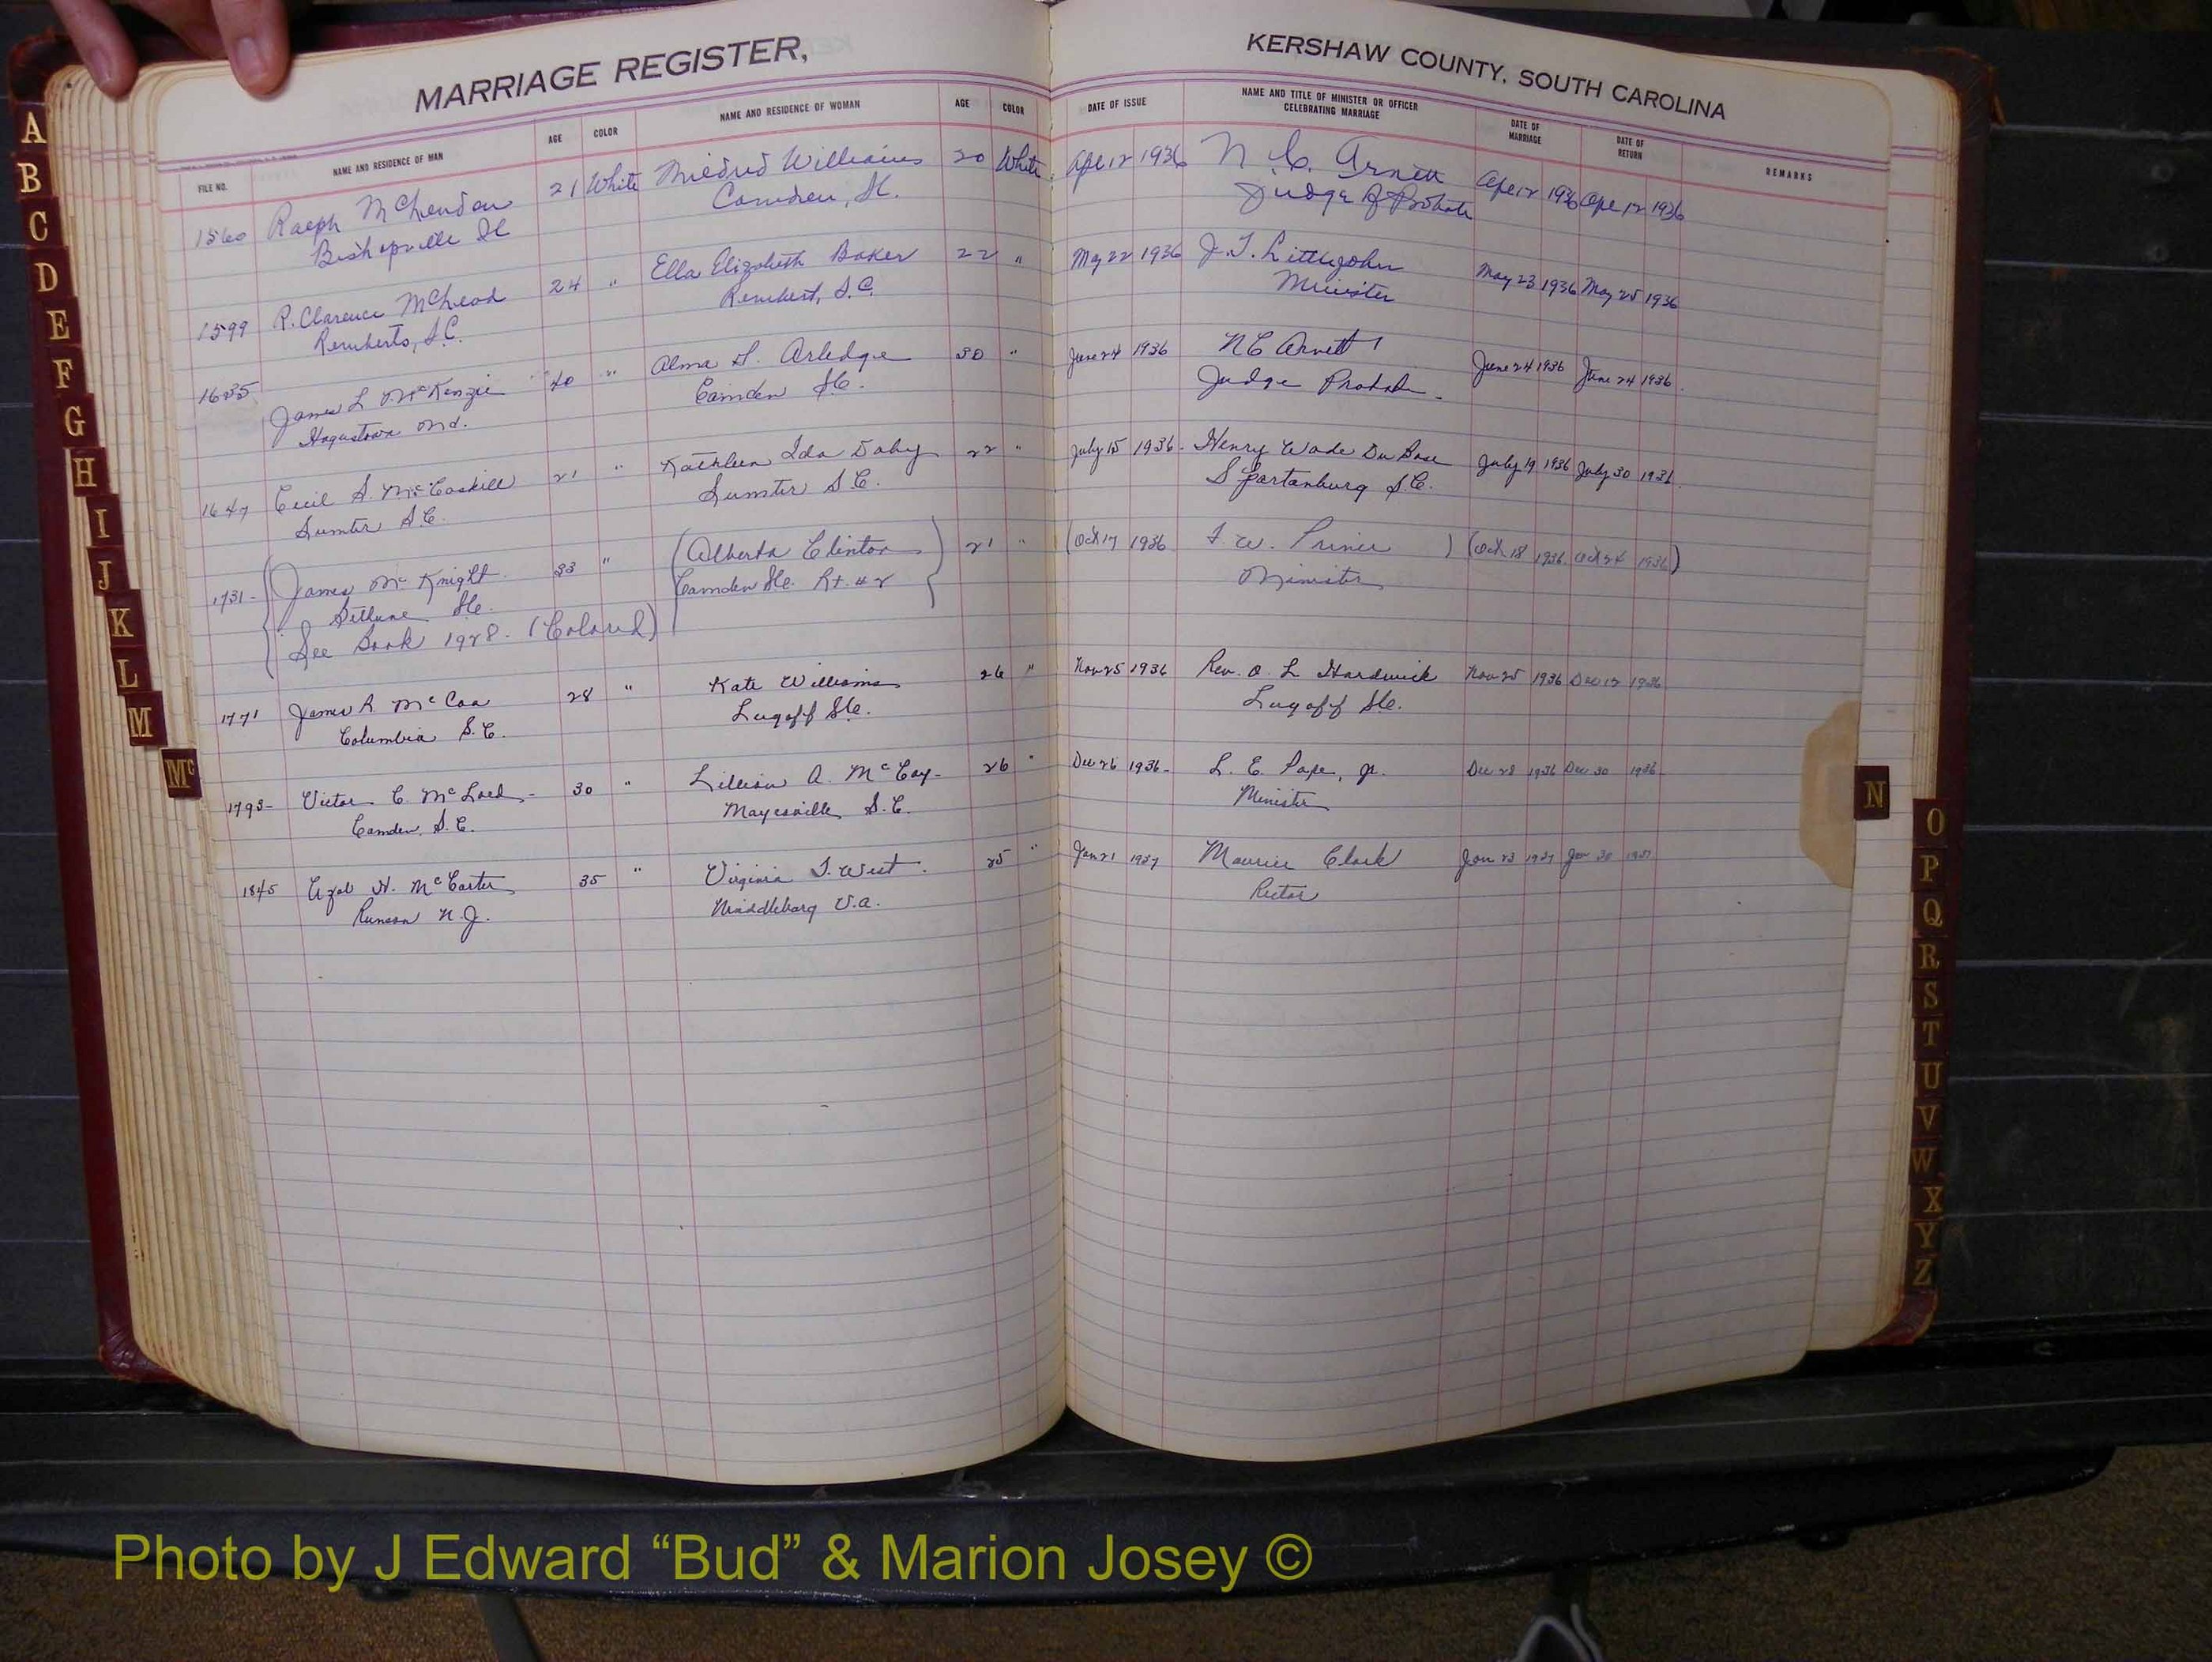 MARRIAGE REGISTER,
KERSHAW COUNTY, SOUTH CAROLINA
FILE NO. NAME AND RESIDENCE OF MAN AGE COLOR NAME AND RESIDENCE OF WOMAN AGE COLOR DATE OF ISSUE NAME AND TITLE OF MINISTER OR OFFICER CELEBRATING MARRIAGE DATE OF MARRIAGE DATE OF RETURN REMARKS
1560 Ralph McLendon 21 White Mildred Williams 20 White Apr 12 1936 N. C. Arnett Apr 12 1936 Apr 12 1936
Bishopville SC Camden, SC. Judge of Probate
1599 R. Clarence McLeod 24 " Ella Elizabeth Baker 22 " May 22 1936 J. T. Littlejohn May 23 1936 May 25 1936
Remberts, S.C. Rembert, S.C. Minister
1635 James L McKenzie 40 " Alma S. Arledge 30 " June 24 1936 N C Arnett June 24 1936 June 24 1936.
Hagustown Md. Camden SC. Judge Probate
1647 Cecil S. McCaskill 21 " Kathleen Ida Daby 22 " July 15 1936- Henry Wade DuBose July 19 1936 July 30 1936.
Sumter S.C. Sumter S.C. Spartanburg S.C.
1731- (James McKnight 33 " (Alberta Clinton) 21 " (Oct 17 1936 F. W. Prince ) (Oct 18 1936 Oct 24 1936)
Bethune SC. Camden SC. Rt. #2 Minister
See Book 1928. (Colored)
1771 James R McCaa 28 " Kate Williams 26 " Nov 25 1936 Rev. O. L Hardwick Nov 25 1936 Dec 12 1936
Columbia S.C. Lugoff SC. Lugoff SC.
1793- Victor C. McLeod- 30 " Lillian A. McCoy- 26 " Dec 26 1936- L. E. Pope, Jr. Dec 28 1936 Dec 30 1936
Camden, S.C. Mayesville S.C. Minister
1845 Uzal H. McCarter 35 " Virginia T. West. 25 " Jan 21 1937 Maurice Clark Jan 23 1937 Jan 30 1937
Rumson N.J. Middleburg V.a. Rector
A
B
C
D
E
F
G
H
I
J
K
L
M
Mc
N
O
P
Q
R
S
T
U
V
W
X
Y
Z
Photo by J Edward “Bud” & Marion Josey ©